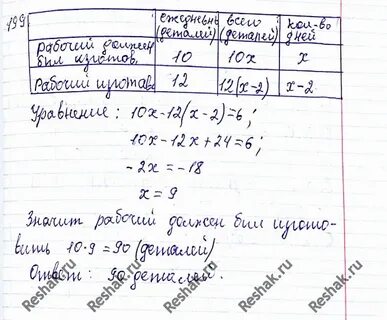 199
ежедневн (деталей) всего (деталей) кол-во дней
Рабочий должен был изготов. 10 10x x
Рабочий изготав 12 12(x-2) x-2
Уравнение: 10x-12(x-2)=6;
10x-12x+24=6;
-2x=-18
x=9
Значит рабочий должен был изгото-
вить 10·9=90 (деталей)
Ответ: 90 деталей.
Reshak.ru
Reshak.ru
Reshak.ru
Reshak.ru
Reshak.ru